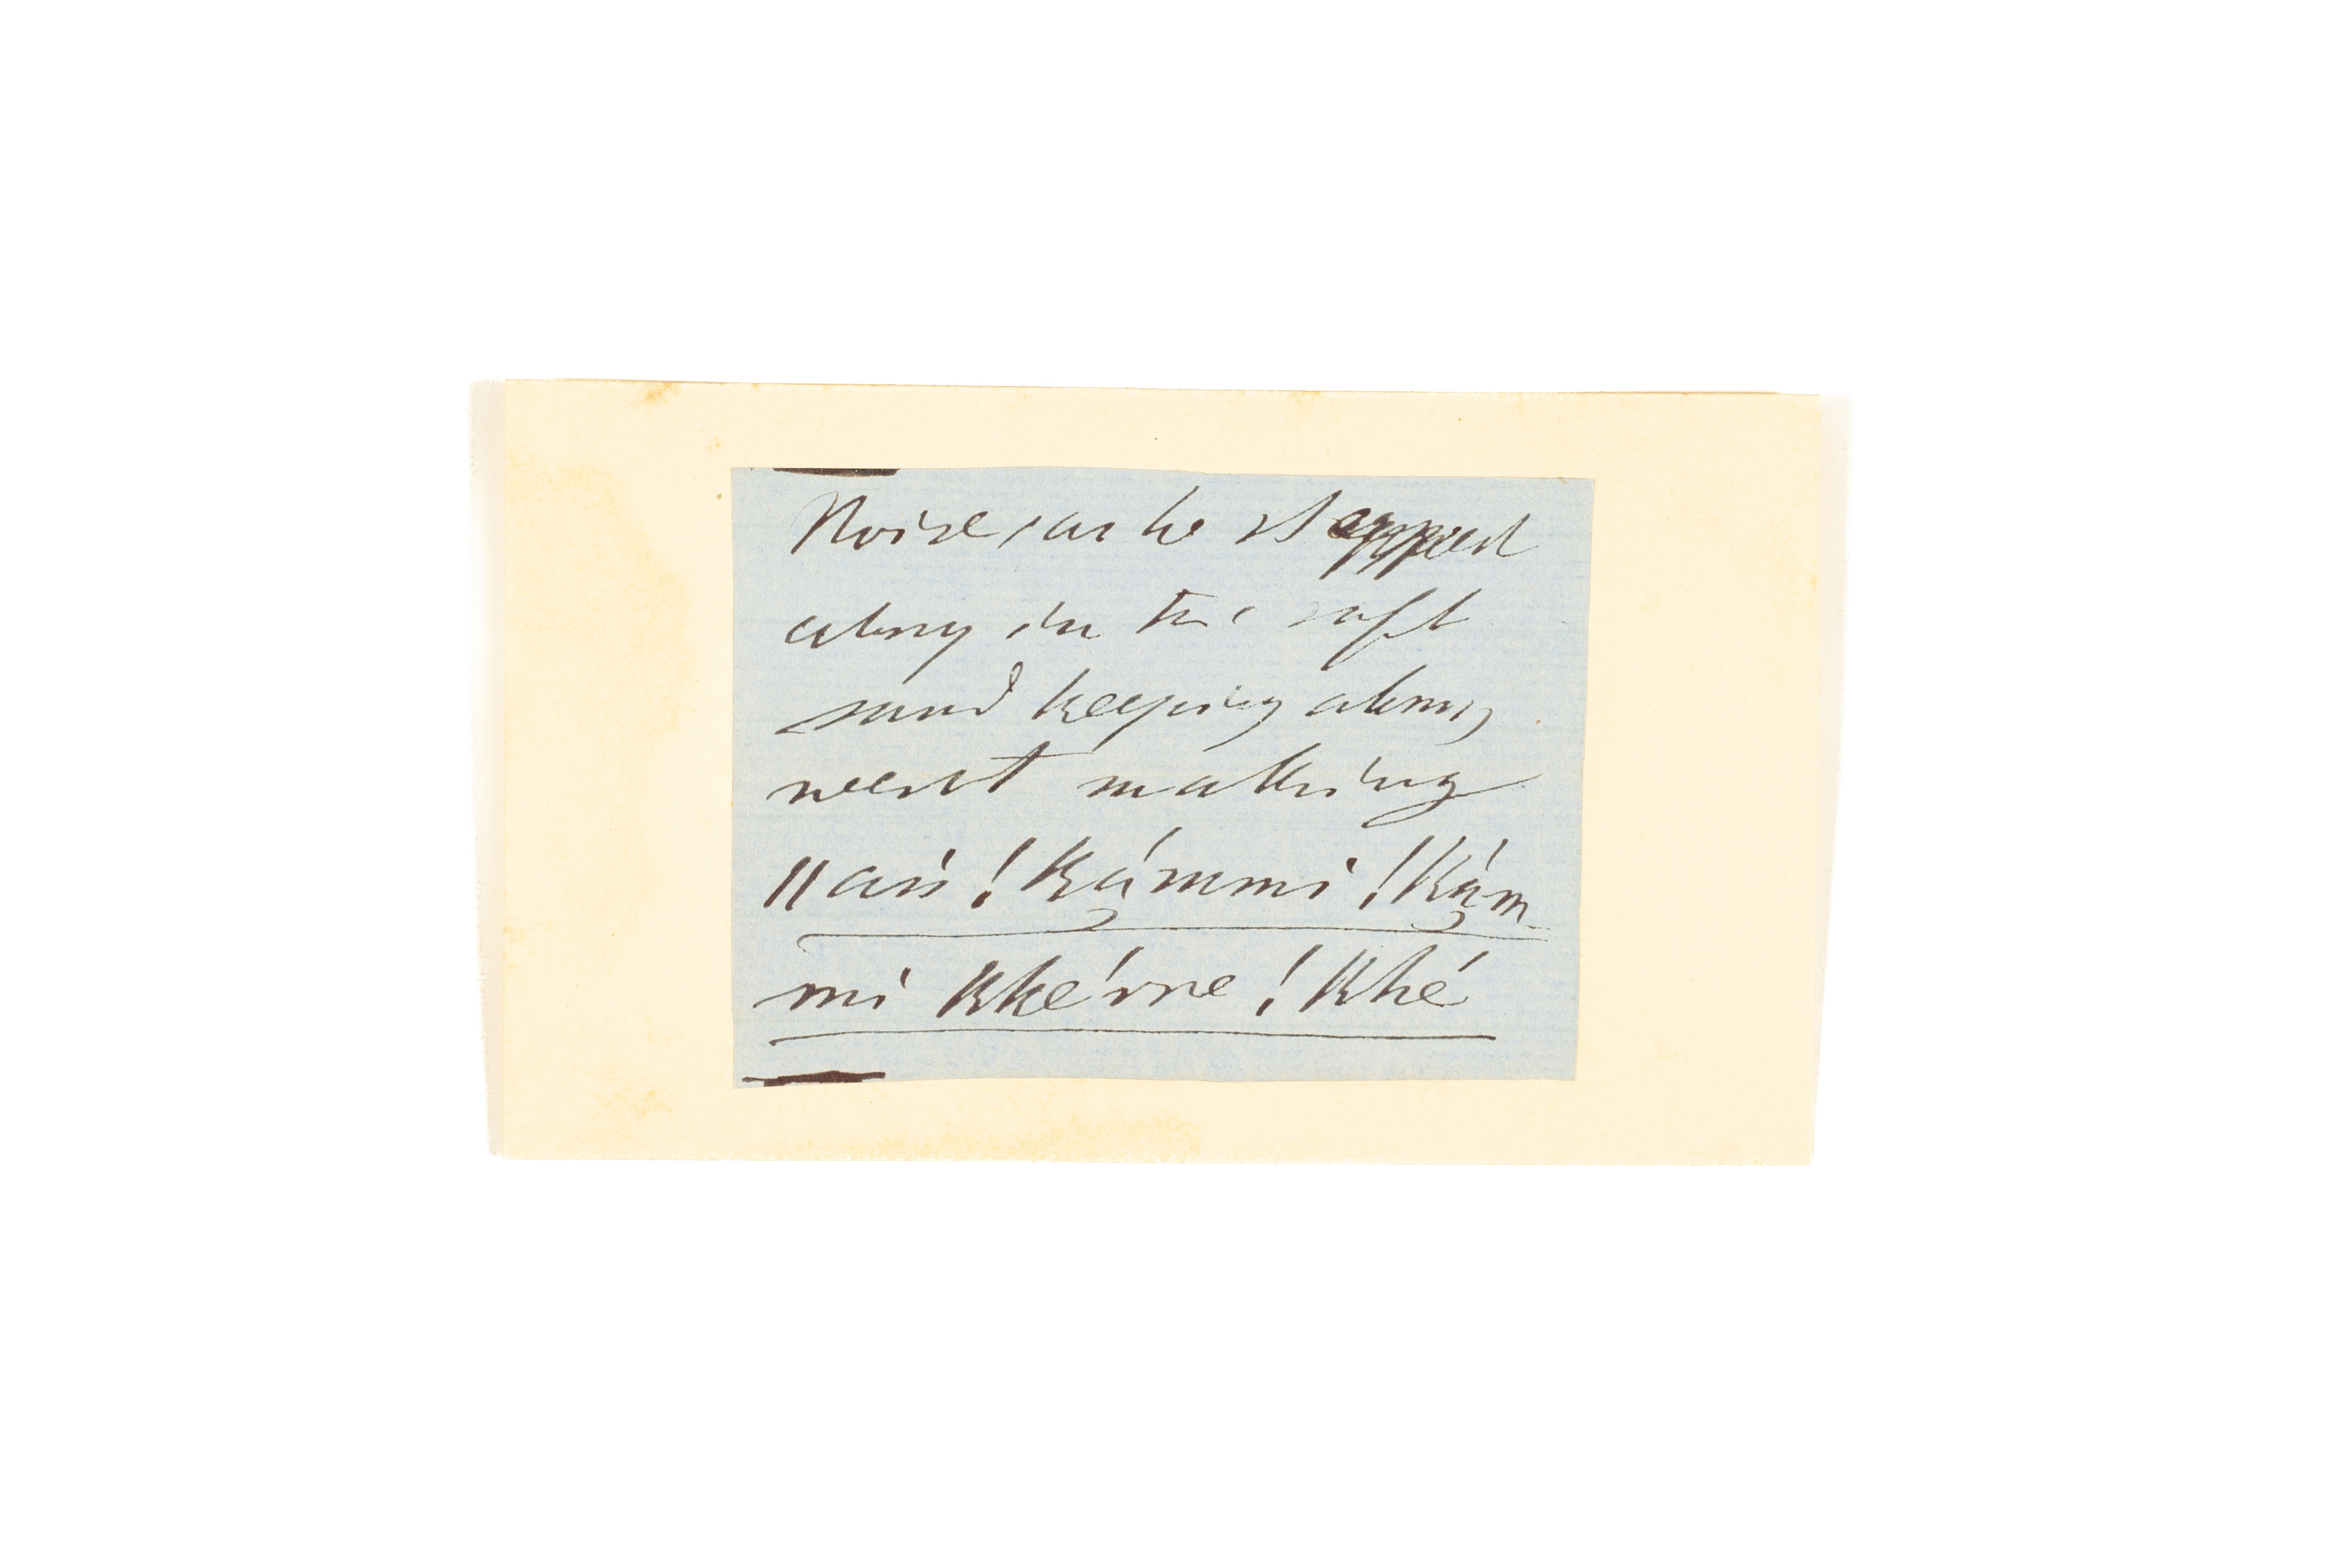 Noise, as he stepped
along in the soft
sand keeping along
next making
ǁaṅ! Kú̦mmi! Kú̦m-
mi Kkérre! Khé